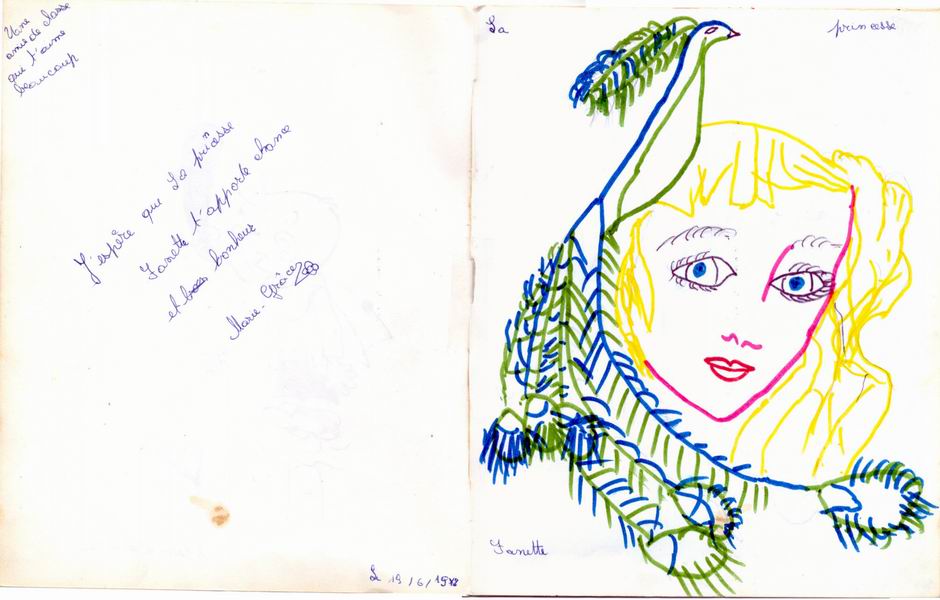 Une
amie de classe
que t'aime
beaucoup
J'espère que La princesse
Fanette t'apporte chance
et bonheur
Marie-Grâce
L 19/6/19
La princesse
Fanette